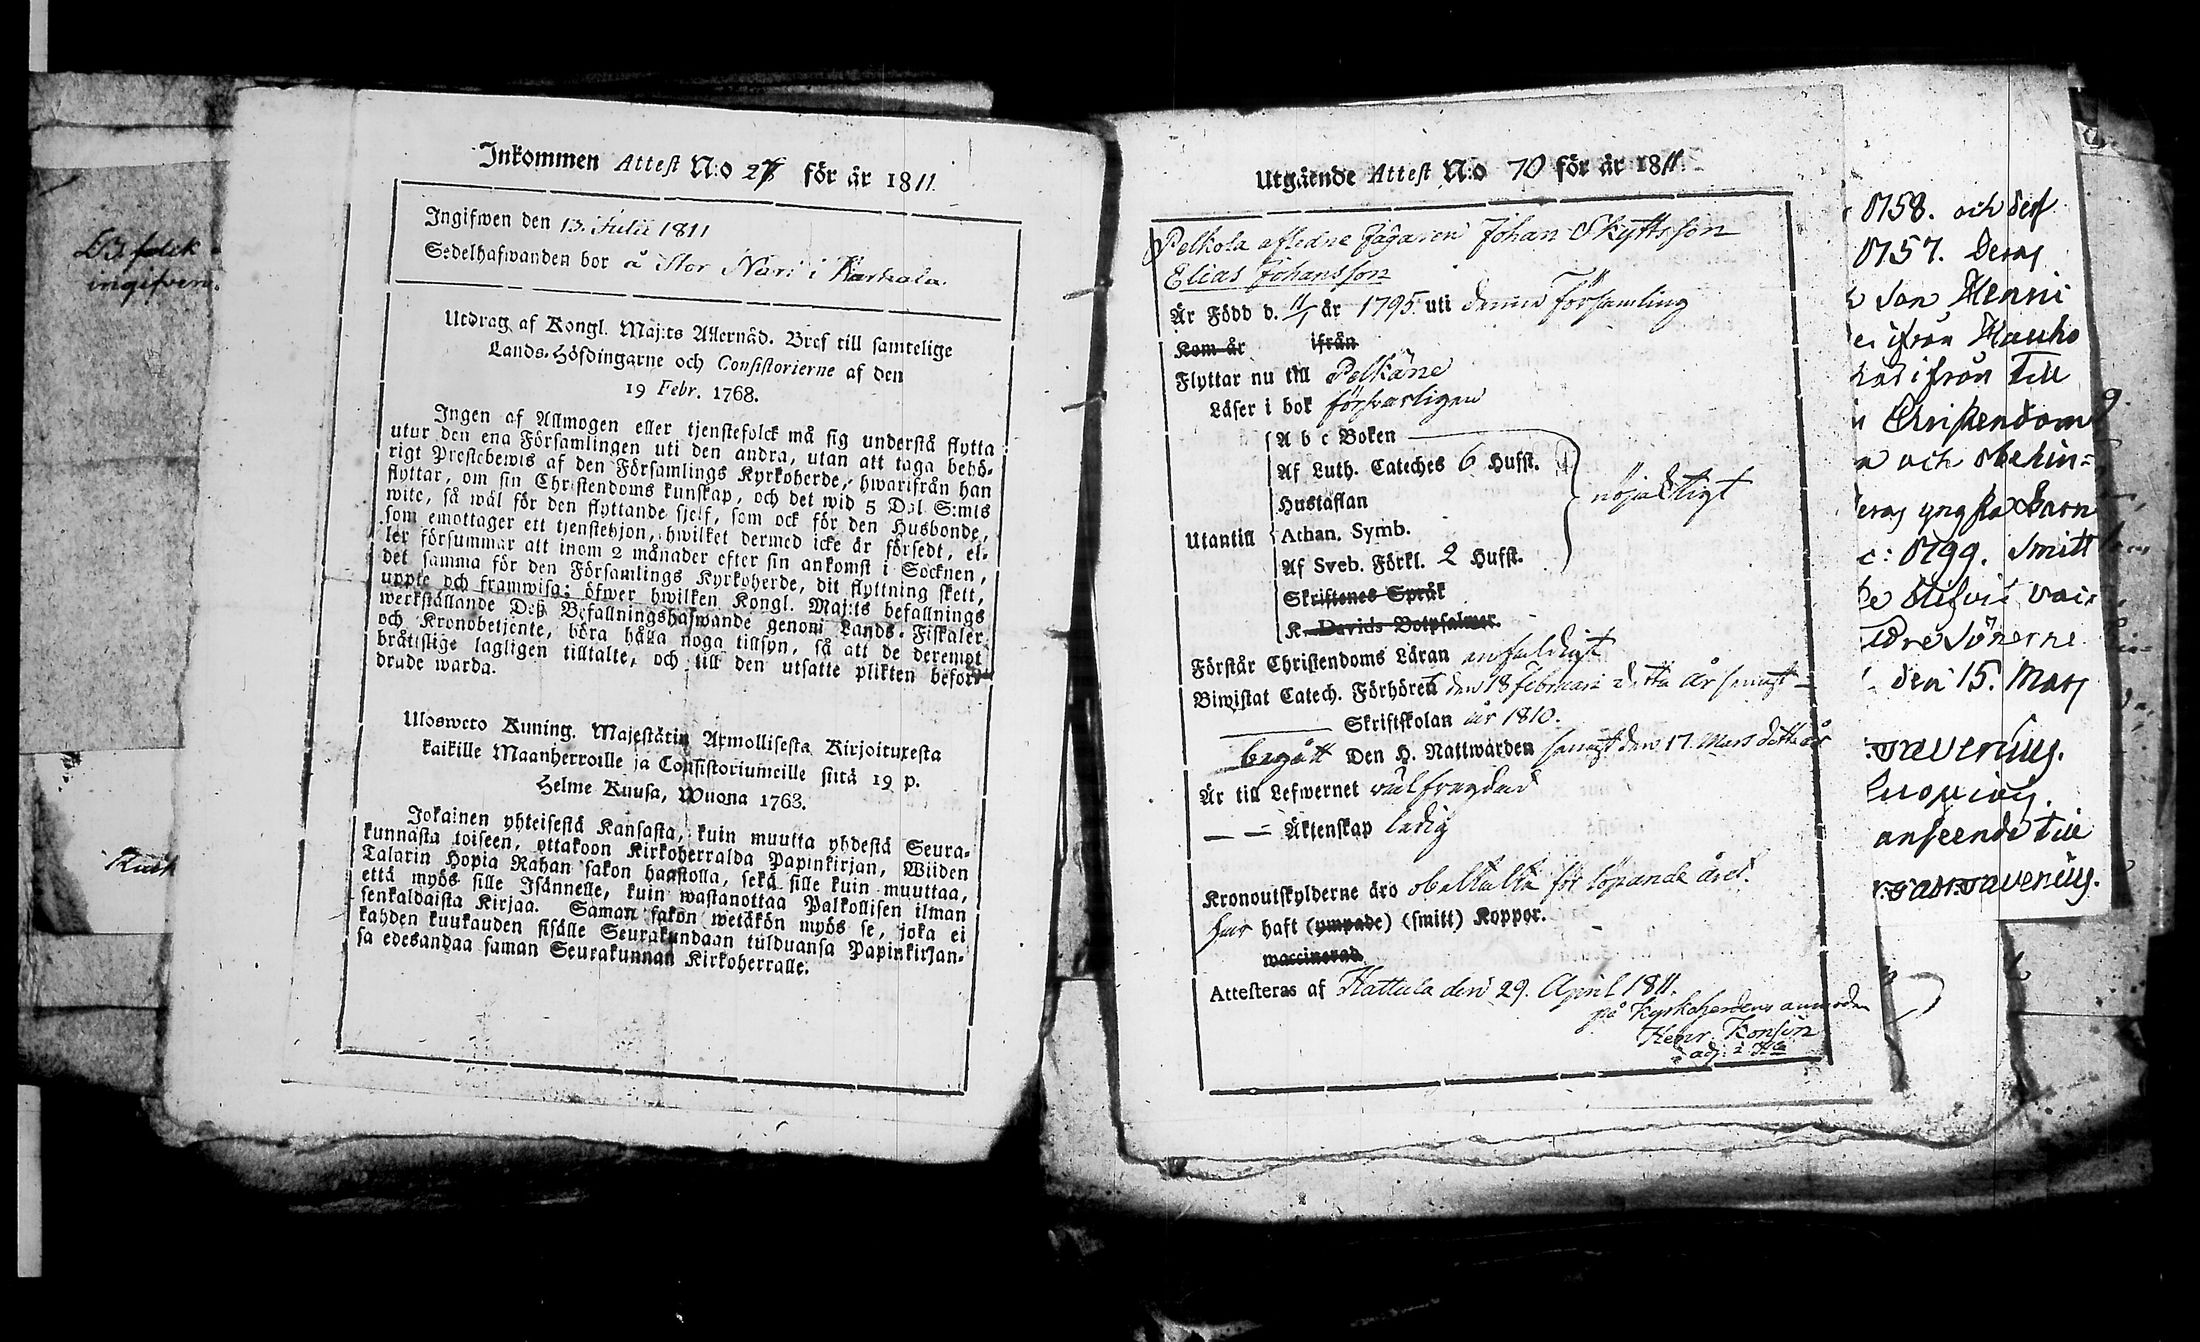 Inkommen Attest N:o 27 för år 1811.
Ingifwen den 13. Julii 1811
Sedelhafwanden bor å Stor Nari i Karkala.
Utdrag af Kongl. Maj:ts Allernåd. Bref till samtelige
Lands-Höfdingarne och Consistorierne af den
19 Febr. 1768.
Ingen af Allmogen eller tjenstefolck må sig understå flytta
utur den ena Församlingen uti den andra, utan att taga behö-
rigt Prestebewis af den Församlings Kyrkoherde, hwarifrån han
flyttar, om sin Christendoms kunskap, och det wid 5 Dal. S:mts
wite, så wäl för den flyttande sjelf, som ock för den Husbonde,
som emottager ett tjenstehjon, hwilket dermed icke är försedt, el-
ler försummar att inom 2 månader efter sin ankomst i Socknen,
det samma för den Församlings Kyrkoherde, dit flyttning skett,
uppte och framwisa; öfwer hwilken Kongl. Maj:ts befallnings
werkställande Deß Befallningshafwande genom Lands-Fiskaler
och Kronobetjente, böra hålla noga tillsyn, så att de deremot
bråtislige lagligen tilltalte, och till den utsatte plikten befor-
drade warda.
Uloswето Kuning. Majestätin Armollisesta Kirjoituxesta
kaikille Maanherroille ja Consistoriumeille siitä 19 p.
Helme Kuusa, Wuona 1763.
Jokainen yhteisestä Kansasta, kuin muutta yhdestä Seura-
kunnasta toiseen, ottakoon Kirkoherralda Papinkirjan, Wiiden
Talarin Hopia Rahan sakon haastolla, sekä sille kuin muuttaa,
että myös sille Isännelle, kuin wastanottaa Palkollisen ilman
senkaldaista Kirjaa. Saman sakon wetäkön myös se, joka ei
kahden kuukauden sisälle Seurakundaan tulduansa Papinkirjan-
sa edesandaa saman Seurakunnan Kirkoherralle.
folck
ingifven.
Utgående Attest N:o 70 för år 1811.
Pelkola aflidne Jägaren Johan Skyttsson
Elias Johansson
Är Född d. 11/1 år 1795 uti denna Församling
Kom år ifrån
Flyttar nu till Pelkäne
Läser i bok försvarligen
A b c Boken
Af Luth. Cateches 6 Hufst.
Hustaflan
nöjaktigt
Utantill Athan. Symb.
Af Sveb. Förkl. 2 Hufst.
Skriftenes Språk
K. Davids Botpsalmer.
Förstår Christendoms Läran enfaldigt
Biwistat Catech. Förhören den 18 Februari detta år senast
Skriftskolan år 1810.
begått Den H. Nattwarden senast den 17. Mars detta år
Är till Lefwernet välfrägdad
Äktenskap ledig
Kronoutskylderne äro obetalta för löpande året.
har haft (ympade) (smitt) Koppor.
waccinerad
Attesteras af Hattula den 29. April 1811.
på Kyrkoherdens anmodan
Henr. Konsin
adj. i Hla
0758. och des
0757. Deras
Son Henric
ifrån Hauho
ifrån Till
Christendom
och obehin=
yngsta Barn
c: 0799. Smitt
Söherne
den 15. Mars
anseende till